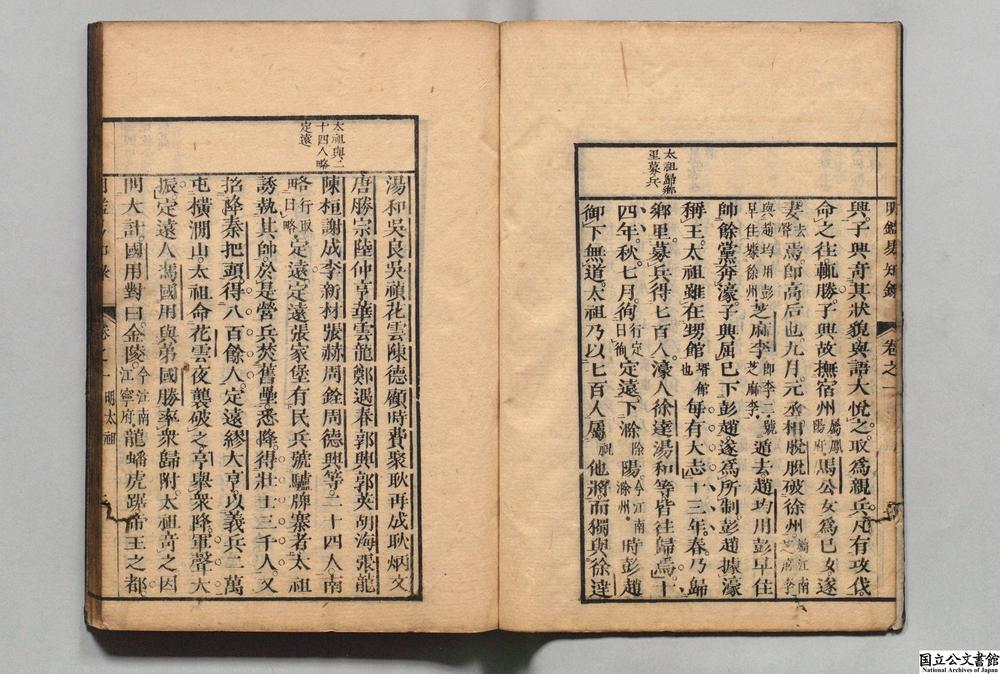 明鑑易知錄 卷之一
太祖歸鄉
里募兵
興。子興奇其狀貌與語大悅之取為親兵。凡有攻伐。
命之往輒勝。子興故撫宿州屬鳳陽府。馬公女為己女遂
妻去聲。焉。即高后也。九月元丞相脫脫破徐州屬江南芝麻李
與趙均用彭早住據徐州。芝麻李即李二號芝麻李。遁去趙均用彭早住
帥餘黨奔濠。子興屈己下彭趙遂為所制彭趙據濠
稱王太祖雖在甥館壻館也。每有大志十三年春。乃歸
鄉里募兵得七百人。濠人徐達湯和等皆往歸焉十
四年秋七月。徇行定曰徇。定遠。下滁除陽今江南滁州。時彭趙
御下無道。太祖乃以七百人屬祝他將。而獨與徐達
太祖與二
十四人略
定遠
湯和吳良吳禎花雲陳德顧時費聚耿再成耿炳文
唐勝宗陸仲亨華雲龍鄭遇春郭興郭英胡海張龍
陳桓謝成李新材張赫周銓周德興等二十四人南
略行取曰略。定遠。定遠張家堡有民兵號驢牌寨者太祖
誘執其帥。於是營兵焚舊壘悉降。得壯士三千人。又
招降秦把頭得八百餘人。定遠繆大亨以義兵二萬
屯橫澗山。太祖命花雲夜襲破之亨舉衆降。軍聲大
振。定遠人馮國用與弟國勝率衆歸附。太祖奇之因
問大計國用對曰。金陵今江南江寧府。龍蟠虎踞帝王之都
卷之一 明太祖
国立公文書館
National Archives of Japan